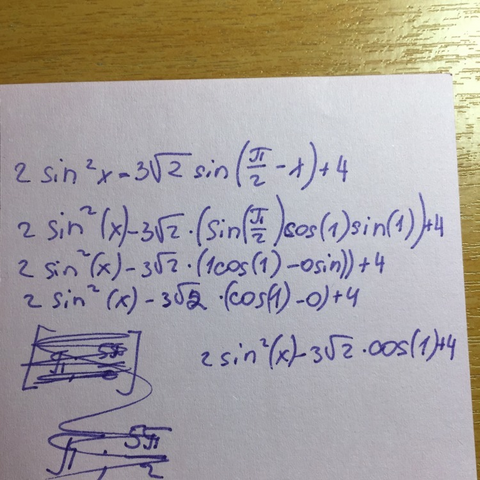 2 sin²x - 3√2 sin(π/2 - x) + 4
2 sin²(x) - 3√2 · (sin(π/2)cos(1)sin(1)) + 4
2 sin²(x) - 3√2 · (1cos(1) - 0sin)) + 4
2 sin²(x) - 3√2 · (cos(1) - 0) + 4
2 sin²(x) - 3√2 · cos(1) + 4
π, 5π/2